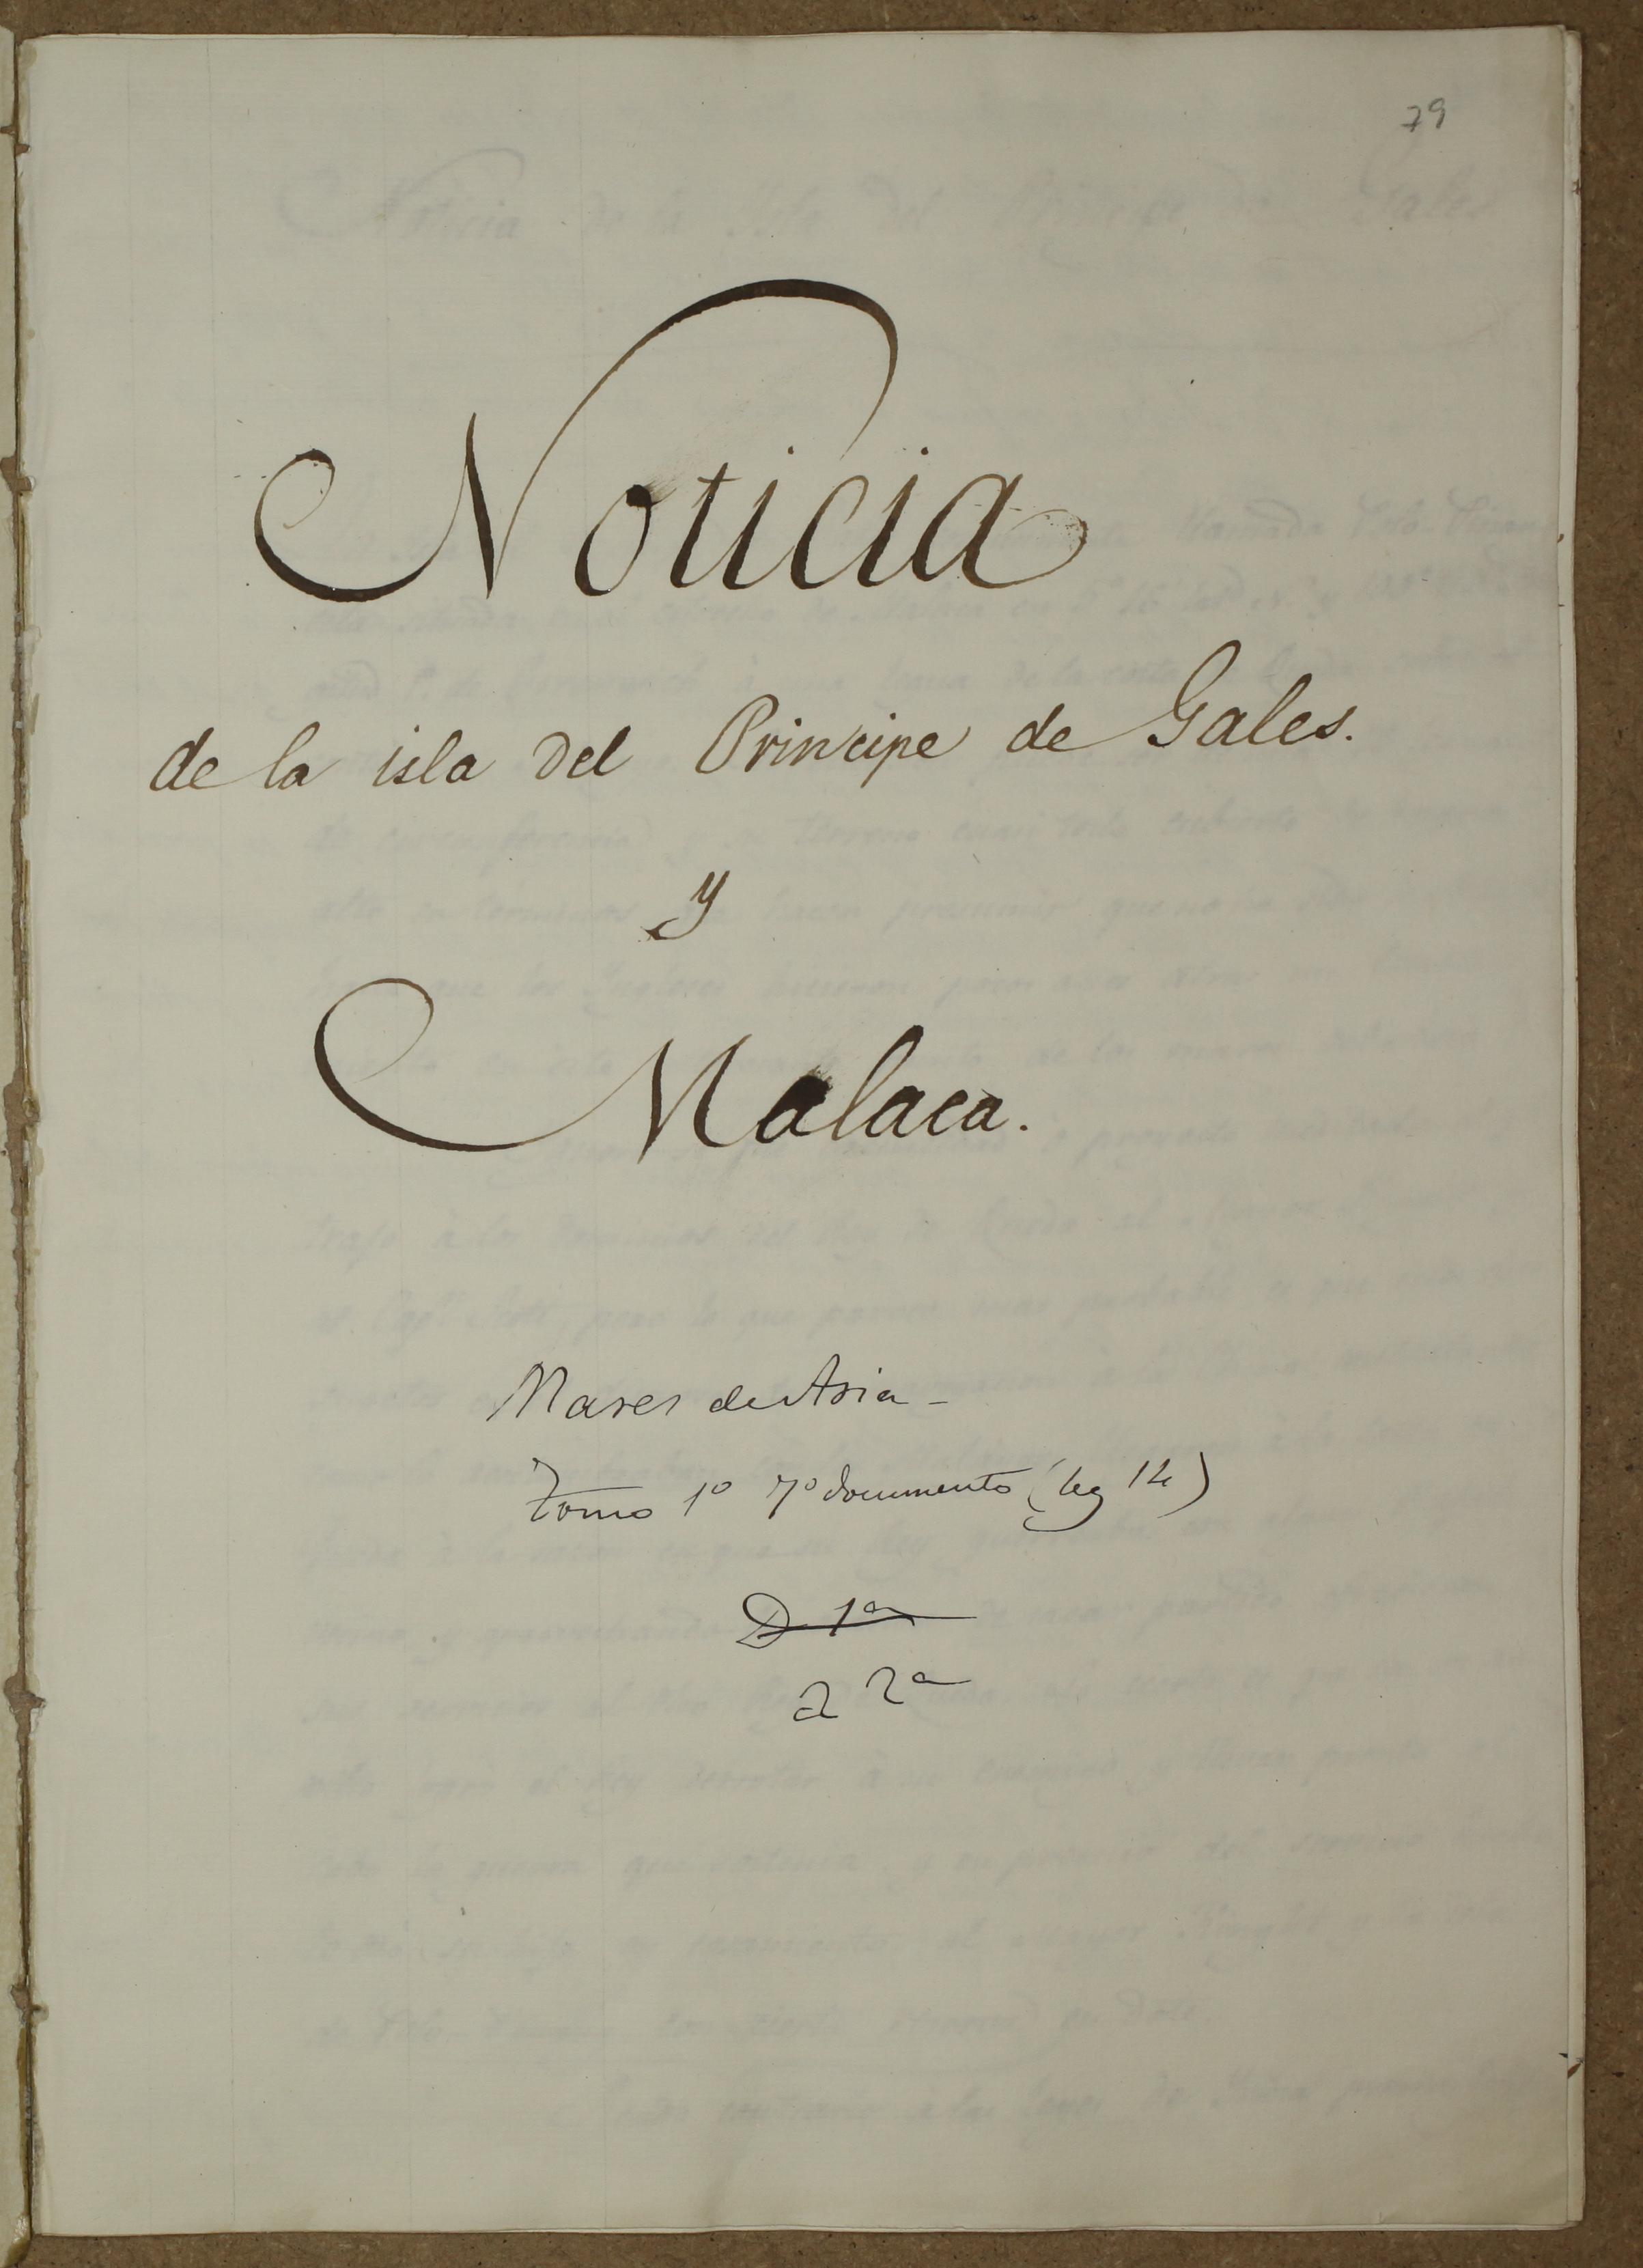 79
Noticia
de la isla del Principe de Gales.
y
Malaca.
Mares de Asia -
Tomo 1º 7º documento (leg 14)
D 1ª
a 2ª